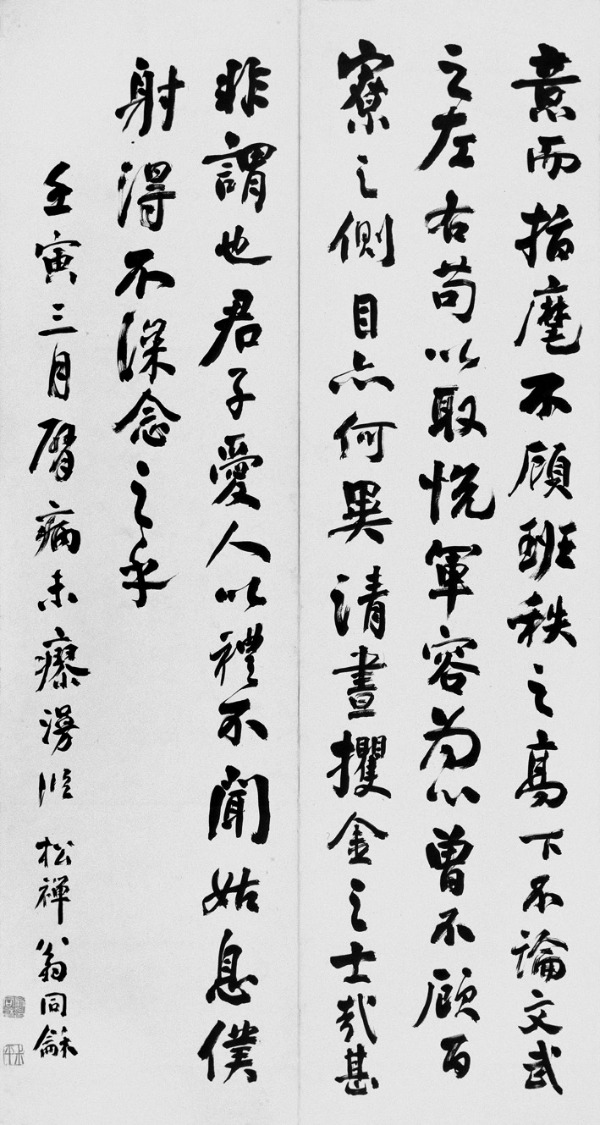 意而指麾不顧班秩之高下不論文武
之左右苟以取悅軍容為心曾不顧百
寮之側目亦何異清晝攫金之士哉甚
非謂也君子愛人以禮不聞姑息僕
射得不深念之乎
壬寅三月臂病未瘳漫臨 松禪翁同龢